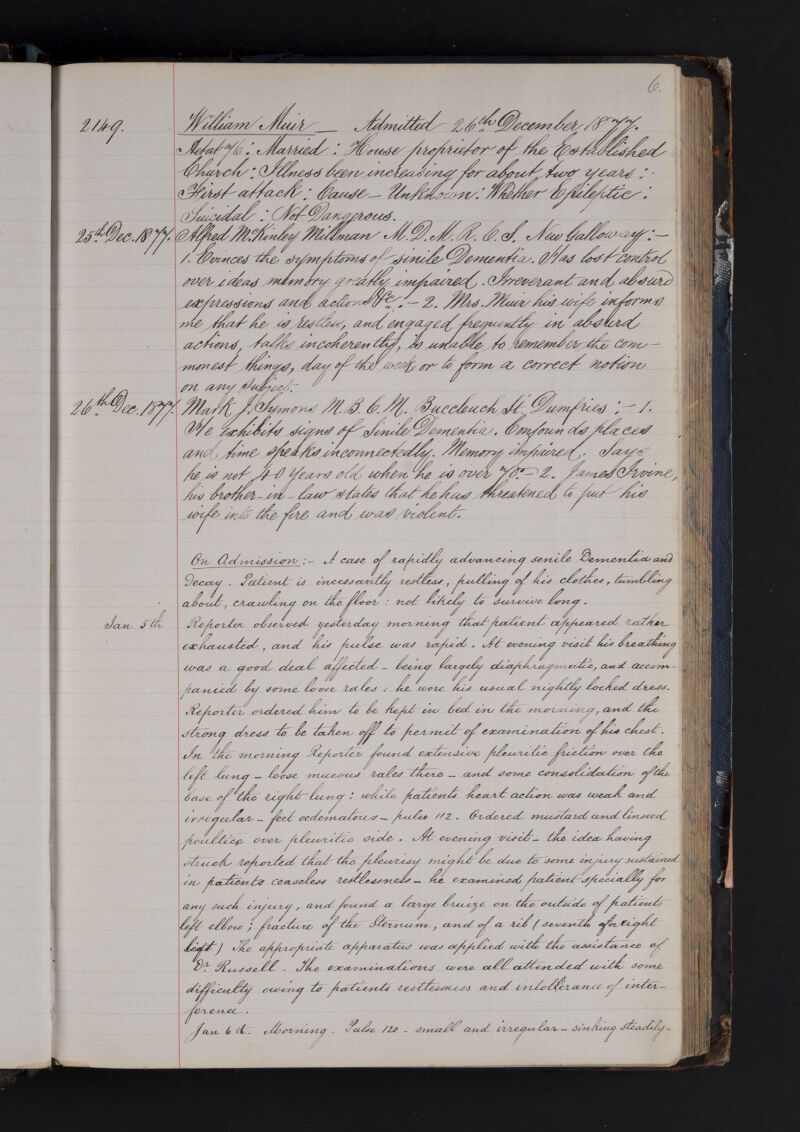 6.
2149. William Muir — Admitted 26th December 1877.
Aetat 76: Married: House proprietor of the Established
Church: Illness been increasing for about two years:
First attack: Cause – Unknown: Whether Epileptic:
Suicidal: Not Dangerous.
25th Dec. 1877. Alfred McKinley Millman M.D.M.R.C.S. New Galloway:–
1. Evinces the symptoms of sinile Dementia. Has lost control
over ideas memory greatly impaired. Irreverant and absurd
expressions and actions &c:– 2. Mrs. Muir his wife informs
me that he is restless, and engaged frequently in absurd
actions, talks incoherently, is unable to remember the com-
monest things, day of the week or to form a correct notion
on any subject.
26th Dec. 1877. Mark J. Symons M.B.C.M. Buccleuch St. Dumfries:– 1.
He exhibits signs of Sinile Dementia. Confounds places
and time speaks inconnectedly. Memory impaired. Says
he is not 40 years old when he is over 70.– 2. James Irvine,
his brother-in-law states that he has threatened to put his
wife into the fire and was violent.
On Admission:– A case of rapidly advancing senile Dementia and
Decay. Patient is incessantly restless, pulling of his clothes, tumbling
about, crawling on the floor: not likely to survive long.
Jan 5th Reporter observed yesterday morning that patient appeared rather
exhausted, and his pulse was rapid. At evening visit his breathing
was a good deal affected – being largely diaphragmatic, and accom-
panied by some loose rales: he wore his usual nightly locked dress.
Reporter ordered him to be kept in bed in the morning, and the
strong dress to be taken off to permit of examination of his chest.
In the morning Reporter found extensive pleuritic friction over the
left lung – loose mucous rales there – and some consolidation of the
base of the right lung: while patients heart action was weak and
irregular – feet oedematous – pulse 112. Ordered mustard and linseed
poultice over pleuritic side. At evening visit – the idea having
struck reported that the pleurisy might be due to some injury sustained
in patients ceaseless restlessness – he examined patient specially for
any such injury, and found a large bruize on the outside of patients
left elbow; fracture of the Sternum, and of a rib (seventh or eight
left) The appropriate apparatus was applied with the assistance of
Dr. Russell. The examinations were all attended with some
difficulty owing to patients restlessness and intollerance of inter-
ference.
Jan 6th. Morning. Pulse 120 – small and irregular – sinking steadily –